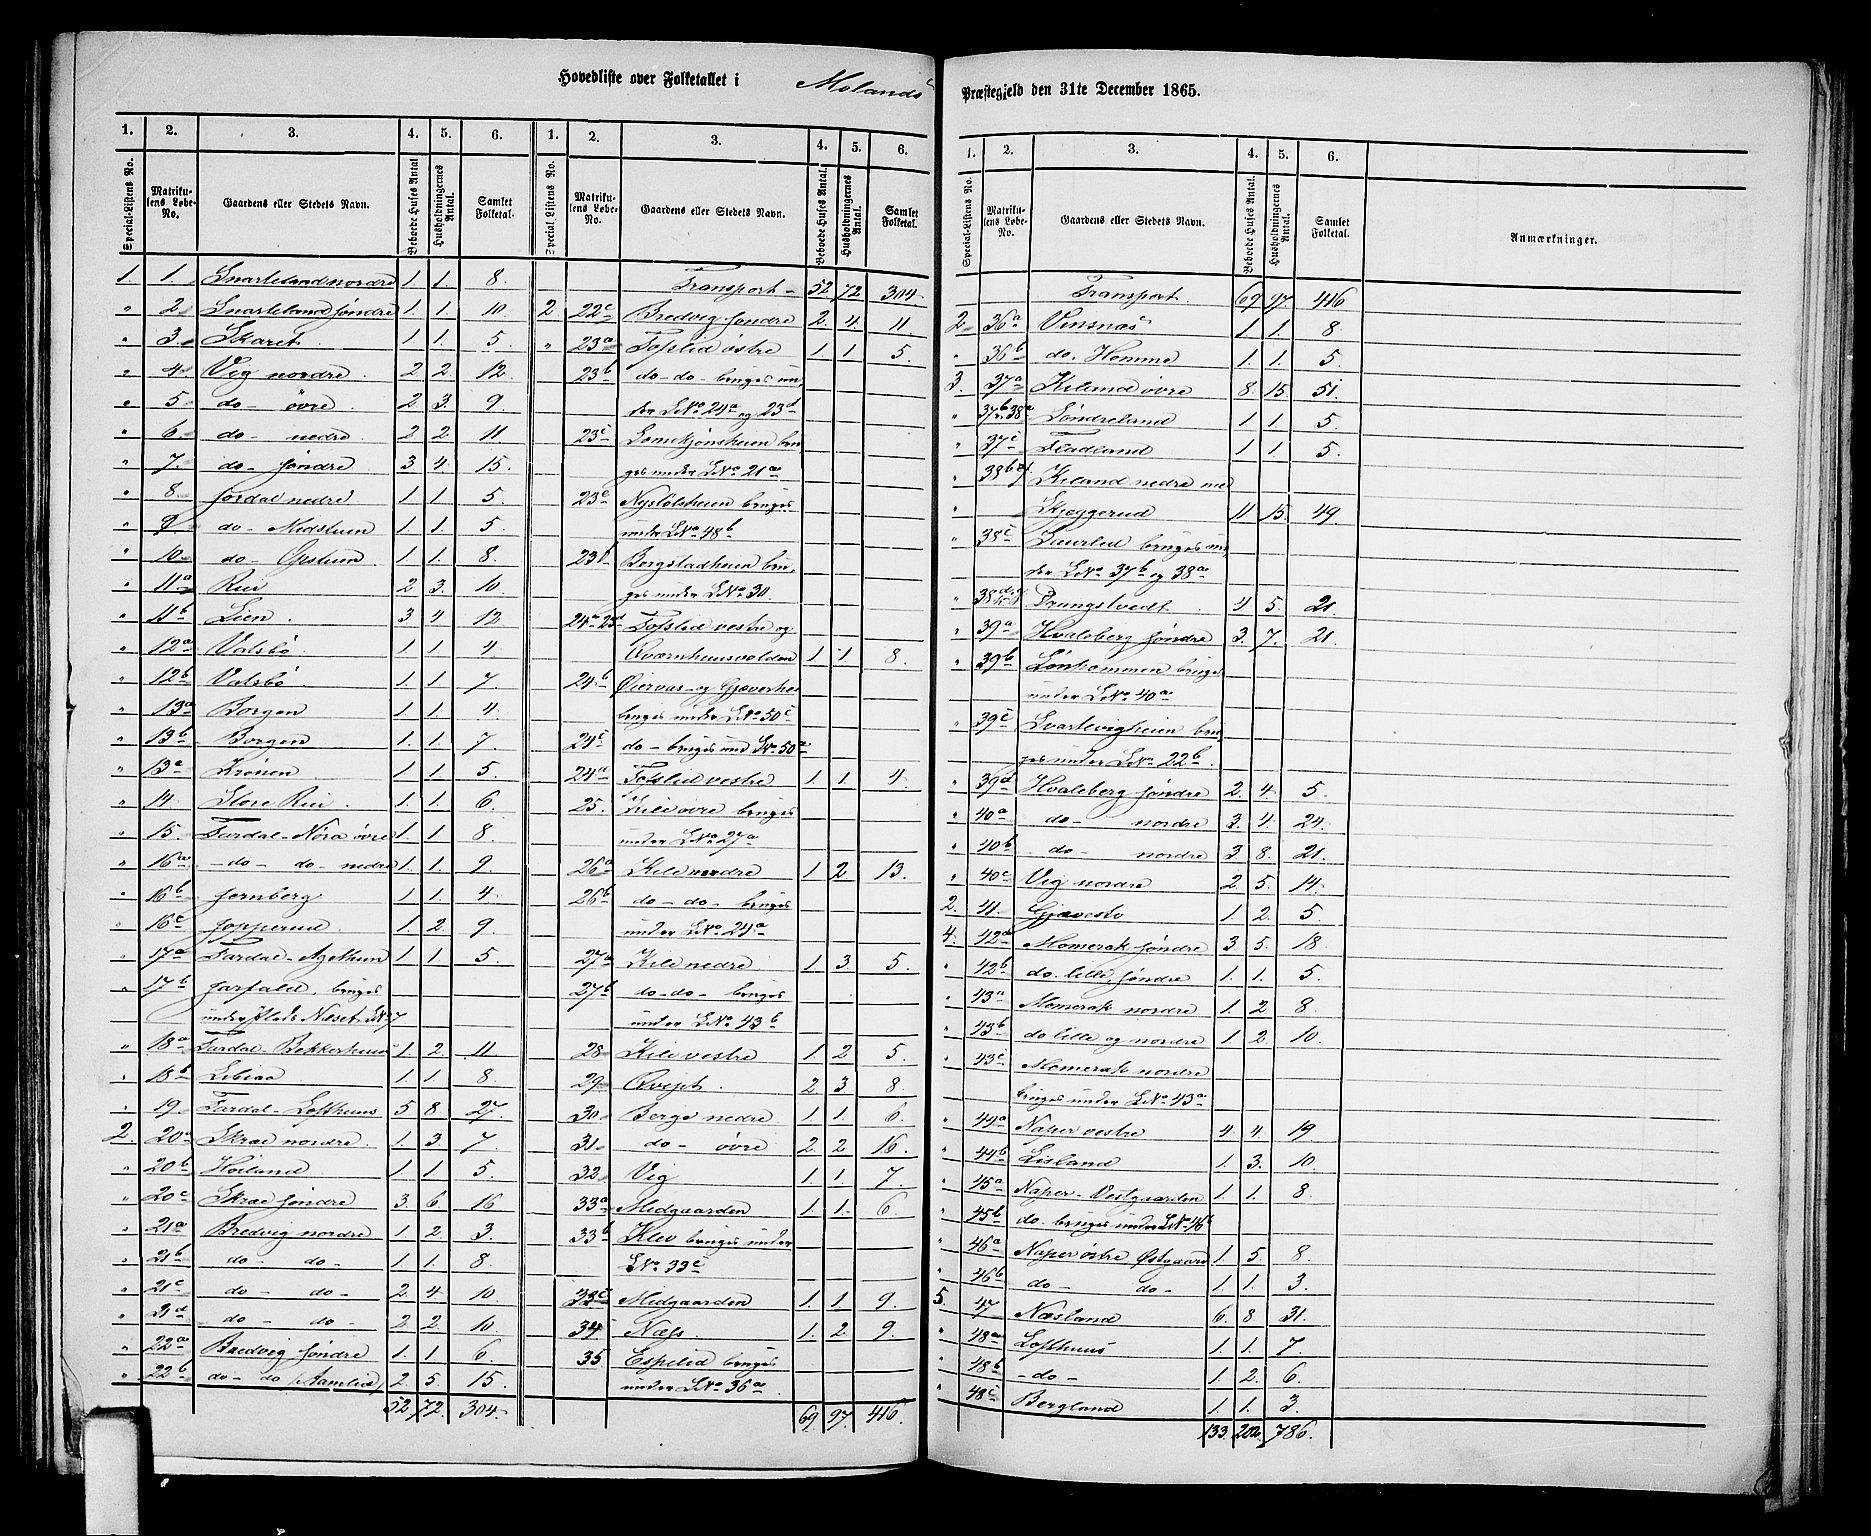 Hovedliste over Folketallet i Molands
Præstegjeld den 31te December 1865.
1. 2. 3. 4. 5. 6.
Special-Listens No. Matrikulens Løbe-No. Gaardens eller Stedets Navn. Beboede Huses Antal Husholdningernes Antal. Samlet Folketal.
1. 1. Snarteland nordre 1. 1. 8.
" 2 Snarteland søndre 1. 1. 10.
" 3. Skaret 1 1. 5.
" 4. Vig nordre 2 2. 12.
" 5. do- övre 2. 3. 9.
" 6. do- nedre 2 2. 11.
" 7. do- söndre 3. 4. 15.
" 8 Jordal nedre 1. 1. 5.
" 9 do- Midstuen 1. 1. 5.
" 10 do- Opstuen 1. 1. 8.
" 11a Rui 2 3. 10
" 11b Lien 3 4 12
" 12a Valsbö 1 1 4.
" 12b Valsbö 1. 1. 7.
" 13a Borgen 1. 1. 4.
" 13b Borgen 1. 1. 7.
" 13a Krönen 1 1. 5.
" 14. Store Rui 1. 1. 6.
" 15. Tardal-Nöra övre 1. 1 8.
" 16a -do- do- nedre 1. 1. 9.
" 16b Jernberg 1 1. 4
" 16c Jopperud 1. 2 9.
" 17a Tardal-Aasthun 1 1 5.
" 17b Jarfald, bruges
under Plads Næset LNo 7
" 18a Tardal-Bekkerhuus 1. 2. 11
" 18b Libiaa 1. 1. 8.
" 19. Tardal-Lofthuus 5 8. 27.
2. 20a Skræ nordre 1. 3. 7
" 20b Høiland 1. 1 5.
" 20c Skræ søndre 3. 6 16
" 21a Bredvig nordre 1 2 3.
" 21b do- do- 1. 1. 8.
" 21c do- do- 2. 4 10.
" 21d do- do- 2 2. 10.
" 22a Bredvig søndre 1. 1 6.
" 22b do- do (Aamlid) 2 5 15.
52 72. 304.
1. 2. 3. 4. 5. 6.
Special-Listens No. Matrikulens Løbe-No. Gaardens eller Stedets Navn. Beboede Huses Antal. Husholdningernes Antal. Samlet Folketal.
Transport- 52 72 304.
2 22c Bredvig søndre 2. 4. 11.
" 23a Topslid østre 1 1 5.
23b do-do-bruges un-
der LNo 24a og 23d
23c Lomtjønsheien bru-
ges under LNo 21a
23e Nystølsheien bruges
under LNo 48b
23f Bergstadheien bru-
ges under LNo 30.
24a 23d Tofslid vestre og
Qværnhuusvolden 1 1 8.
24b Øiervas- og Gjæverhei
bruges under LNo 50c
24c do-bruges und LNo 50a
24a Tofslid vestre 1. 1 4.
25. Kile øvre bruges
under LNo 27a
26a Kile nordre 1 2 13.
26b do-do- bruges
under LNo 24a
27a Kile nedre 1 3. 5.
27b do-do- bruges
under LNo 43b
28 Kile vestre 1. 2 5.
29 Qvipt. 2 3 8
30 Berge nedre 1. 1. 6.
31 do- övre 2. 2 16.
32 Vig 1. 1. 7.
33a Midgaarden 1. 1. 6.
33b Klev bruges under
LNo 33c
33c Midgaarden 1. 1. 9.
34 Næss. 1. 2. 9.
35 Espelid bruges
under LNo 36a
69. 97. 416.
1. 2. 3. 4. 5. 6.
Special-Listens No. Matrikulens Løbe-No. Gaardens eller Stedets Navn. Beboede Huses Antal. Husholdningernes Antal. Samlet Folketal. Anmærkninger.
Transport. 69 97. 416
2 36a Vinsnæs 1 1. 8
" 36b do. Homme 1. 1. 5
3. 37a Kiland övre 8. 15. 51.
" 37b 38a Søndreland 1 1 5
" 37c Fladland 1 1. 5.
" 38b Kiland nedre med
" Skjeggerud 11. 15. 49
" 38c Laurlid bruges un-
der LNo 37b og 38a
" 38d Drungstvedt 4 5. 21.
" 39a Hvaleberg søndre 3. 7. 21.
" 39b Lønkommen bruges
under LNo 40a
" 39c Svartevigheien bru-
ges under LNo 22b.
" 39d Hvaleberg søndre 2. 4. 5.
" 40a do- nordre 3. 4. 24.
" 40b do- nordre 3 8. 21.
" 40c Vig nordre 2. 5. 14.
2. 41. Gjævestö 1. 2. 5.
4. 42a Momerak søndre 3 5. 18
" 42b do. lille søndre 1. 1. 5
" 43a Momerak nordre 1. 2 8.
" 43b do lille og nordre 1 2 10.
" 43c Momerak nordre
bruges under LNo 43a
" 44a Naper vestre 4. 4. 19
" 44b Lisland 1. 3. 10
" 45a Naper-Vestgaarden 1. 1. 8.
" 45b do- bruges under LNo 46b
" 46a Naper östre, Østgaard 1. 5 8.
" 46b do- do- 1. 1. 3.
5. 47 Næsland 6. 8. 31.
" 48a Lofthuus 1. 1. 7.
" 48b -do- 1. 2. 6.
" 48c Bergland 1. 1. 3.
133. 202. 786.